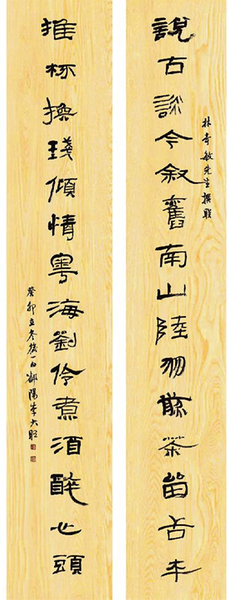 說古談今叙舊南山陸羽斟茶留舌本
林奇敏先生撰聯
推杯換琖傾情粵海劉伶煮酒醉心頭
癸卯立冬後一日鄱陽李大